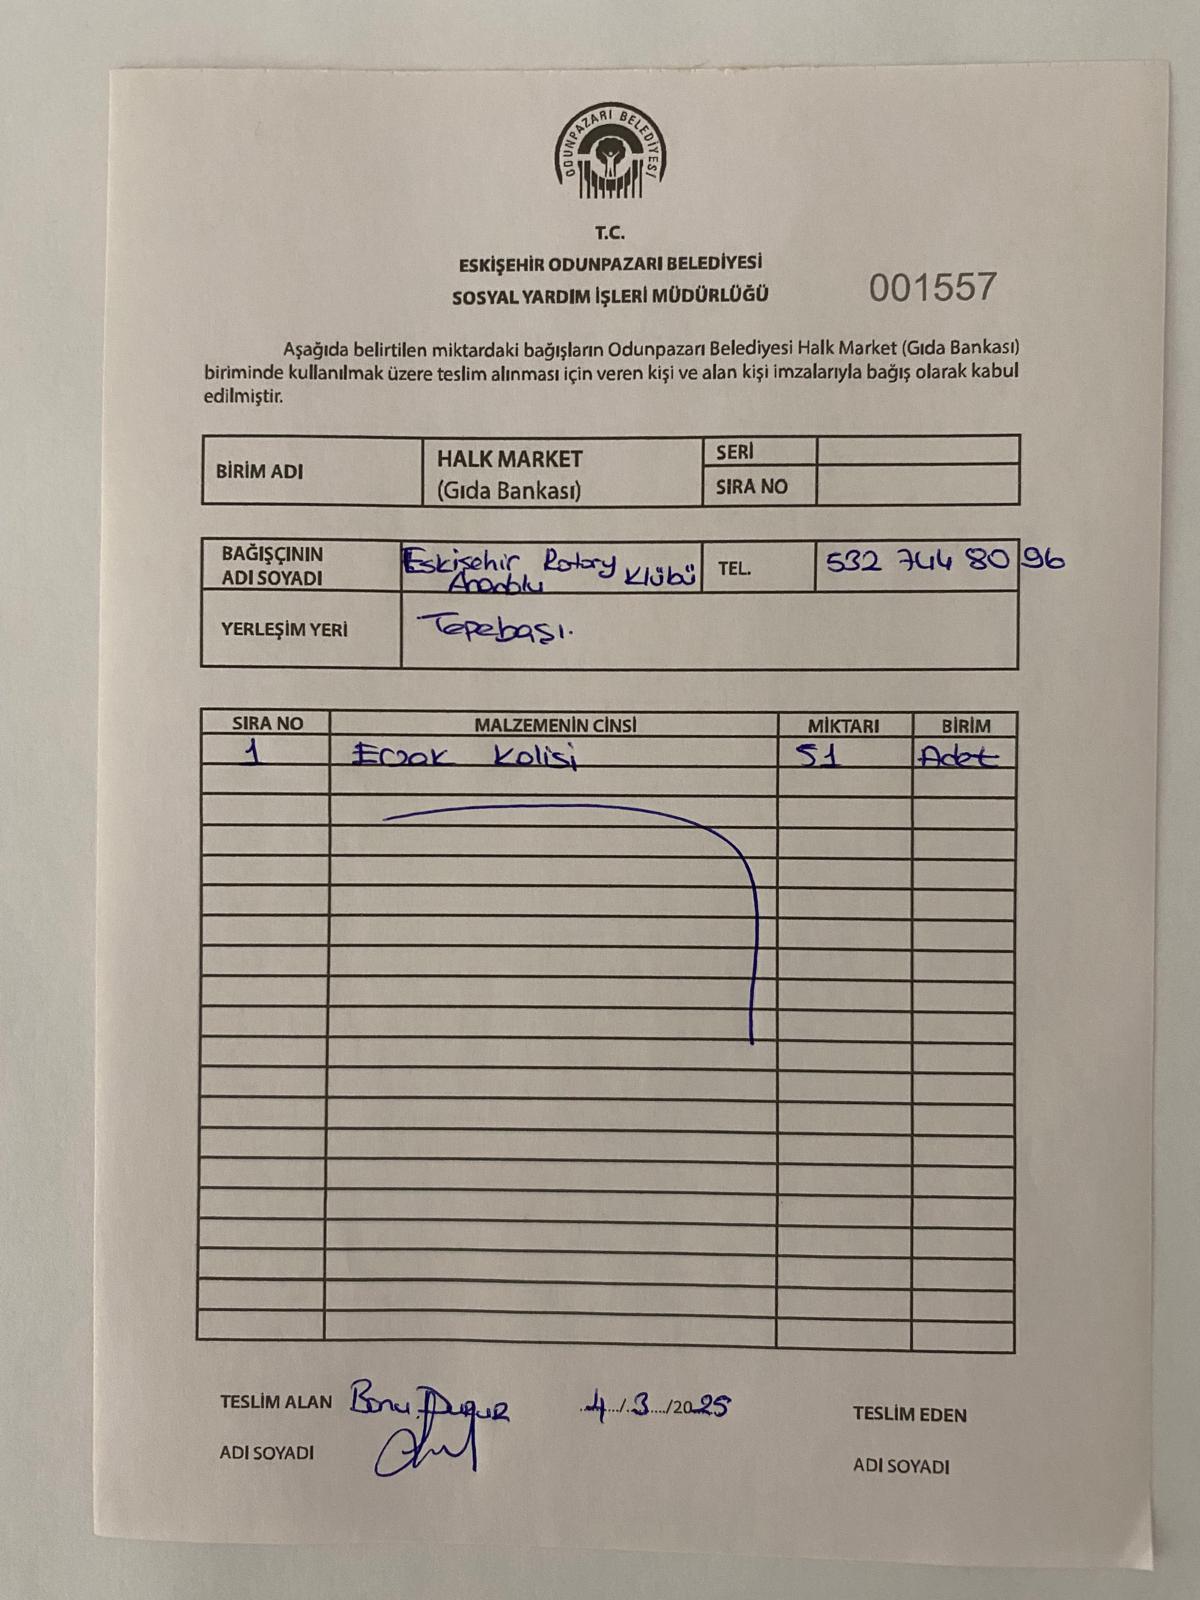 ODUNPAZARI BELEDİYESİ
T.C.
ESKİŞEHİR ODUNPAZARI BELEDİYESİ
SOSYAL YARDIM İŞLERİ MÜDÜRLÜĞÜ
001557
Aşağıda belirtilen miktardaki bağışların Odunpazarı Belediyesi Halk Market (Gıda Bankası)
biriminde kullanılmak üzere teslim alınması için veren kişi ve alan kişi imzalarıyla bağış olarak kabul
edilmiştir.
BİRİM ADI
HALK MARKET
(Gıda Bankası)
SERİ
SIRA NO
BAĞIŞÇININ
ADI SOYADI
Eskişehir Rotary Klübü
Anadolu
TEL.
532 744 80 96
YERLEŞİM YERİ
Tepebaşı.
SIRA NO MALZEMENİN CİNSİ MİKTARI BİRİM
1 Erzak Kolisi 51 Adet
TESLİM ALAN
4/3/2025
TESLİM EDEN
ADI SOYADI
ADI SOYADI